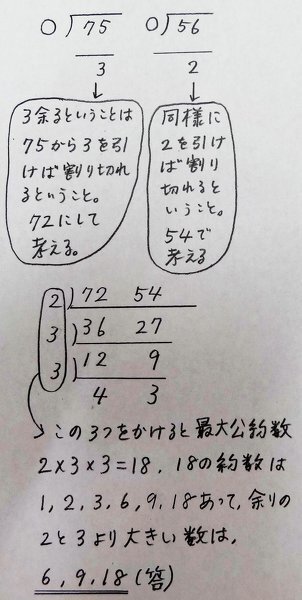 ○)75
3
○)56
2
3余るということは
75から3を引
けば割り切れ
るということ。
72にして
考える。
同様に
2を引け
ば割り
切れると
いうこと。
54で
考える
2)72 54
3)36 27
3)12 9
4 3
この3つをかけると最大公約数
2×3×3=18. 18の約数は
1,2,3,6,9,18あって,余りの
2と3より大きい数は,
6,9,18(答)